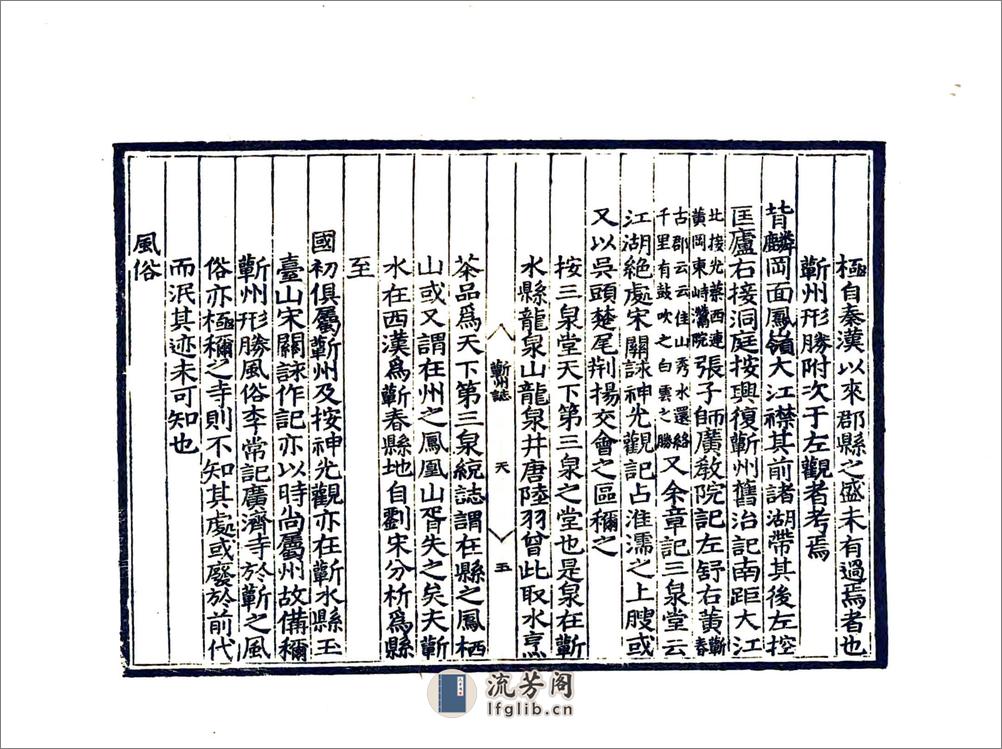 極自秦漢以來郡縣之盛未有過焉者也
蘄州形勝附次于左觀者考焉
背麟岡面鳳嶺大江襟其前諸湖帶其後左控
匡廬右接洞庭按興復蘄州舊治記南距大江
北接光蔡西連蘄春
黃岡東峙灊皖張子師廣敎院記左舒右黃
古郡云云佳山秀水還絡
千里有鼓吹之白雲之勝又余章記三泉堂云
江湖絶處宋關詠神光觀記占淮濡之上腴或
又以吳頭楚尾荆揚交會之區稱之
按三泉堂天下第三泉之堂也是泉在蘄
水縣龍泉山龍泉井唐陸羽曾此取水烹
蘄州誌 天 五
茶品爲天下第三泉統誌謂在縣之鳳栖
山或又謂在州之鳳凰山胥失之矣夫蘄
水在西漢爲蘄春縣地自劉宋分析爲縣
至
國初俱屬蘄州及按神光觀亦在蘄水縣玉
臺山宋關詠作記亦以時尚屬州故備稱
蘄州形勝風俗李常記廣濟寺於蘄之風
俗亦極稱之寺則不知其處或廢於前代
而泯其迹未可知也
風俗
流芳阁
lfglib.cn